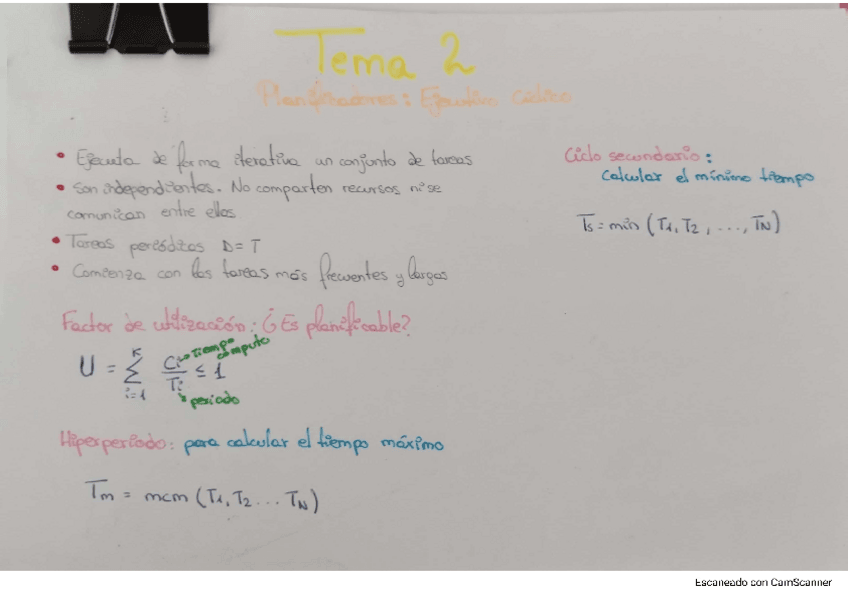 Tema 2
Planificadores: Ejecutivo cíclico
• Ejecuta de forma iterativa un conjunto de tareas
• Son independientes. No comparten recursos ni se
comunican entre ellas
• Tareas periódicas D = T
• Comienza con las tareas más frecuentes y largas
Factor de utilización: ¿Es planificable?
U = K Σ i=1 Ci/Ti ≤ 1
tiempo computo
periodo
Hiperperiodo: para calcular el tiempo máximo
Tm = mcm (T1, T2 ... TN)
Ciclo secundario:
calcular el mínimo tiempo
Ts = min (T1, T2, ..., TN)
Escaneado con CamScanner